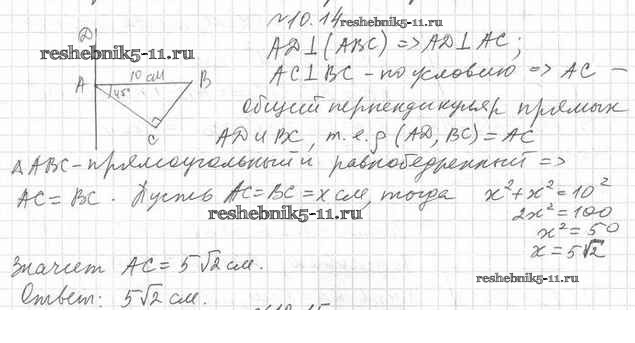 №10.14 reshebnik5-11.ru
D
reshebnik5-11.ru
AD⊥(ABC) => AD⊥AC;
A 10 см B
45°
C
AC⊥BC - по условию => AC -
общий перпендикуляр прямых
AD и BC, т.е. ρ(AD, BC) = AC
△ABC - прямоугольный и равнобедренный =>
AC = BC. Пусть AC = BC = x см, тогда x² + x² = 10²
reshebnik5-11.ru
2x² = 100
x² = 50
x = 5√2
Значит AC = 5√2 см.
reshebnik5-11.ru
Ответ: 5√2 см.